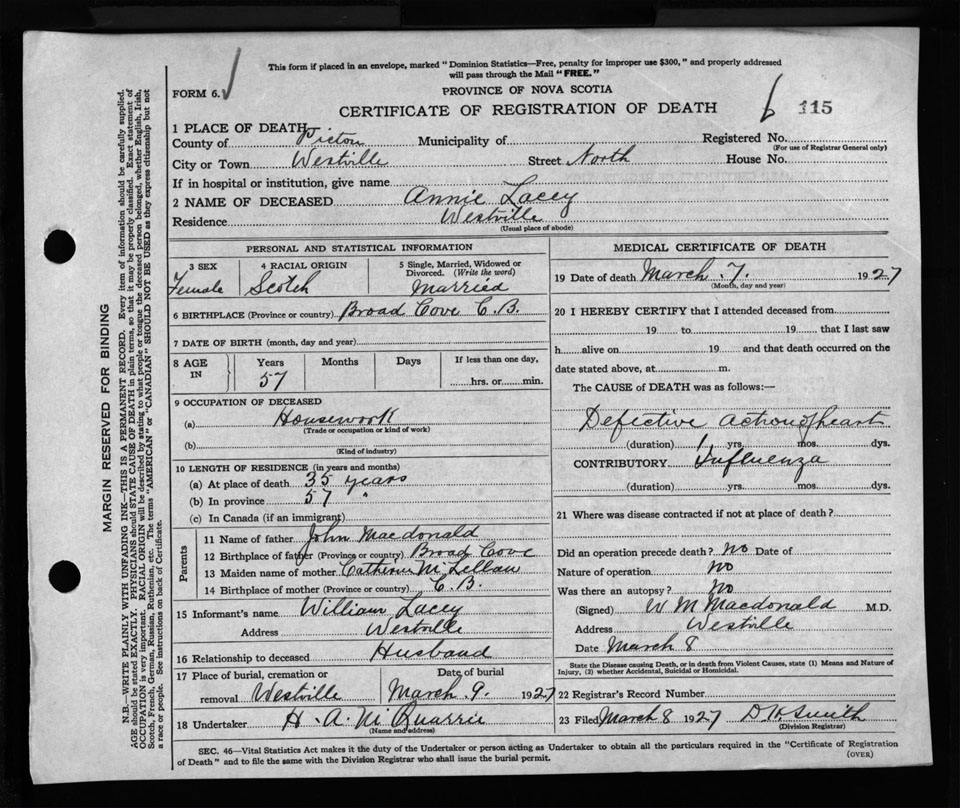 This form if placed in an envelope, marked "Dominion Statistics—Free, penalty for improper use $300," and properly addressed
will pass through the Mail "FREE."
FORM 6.
PROVINCE OF NOVA SCOTIA
CERTIFICATE OF REGISTRATION OF DEATH
6 115
1 PLACE OF DEATH
County of Pictou Municipality of Registered No.
(For use of Registrar General only)
City or Town Westville Street North House No.
If in hospital or institution, give name
2 NAME OF DECEASED Annie Lacey
Residence Westville
(Usual place of abode)
PERSONAL AND STATISTICAL INFORMATION
3 SEX 4 RACIAL ORIGIN 5 Single, Married, Widowed or Divorced. (Write the word)
Female Scotch Married
6 BIRTHPLACE (Province or country) Broad Cove C.B.
7 DATE OF BIRTH (month, day and year)
8 AGE IN Years Months Days If less than one day,
57 hrs. or min.
9 OCCUPATION OF DECEASED
(a) Housework
(Trade or occupation or kind of work)
(b)
(Kind of industry)
10 LENGTH OF RESIDENCE (in years and months)
(a) At place of death 35 years
(b) In province 57 "
(c) In Canada (if an immigrant)
Parents
11 Name of father John Macdonald
12 Birthplace of father (Province or country) Broad Cove
13 Maiden name of mother Catherine McLellan
14 Birthplace of mother (Province or country) C.B.
15 Informant's name William Lacey
Address Westville
16 Relationship to deceased Husband
17 Place of burial, cremation or Date of burial
removal Westville March 9. 1927
18 Undertaker H. A. McQuarrie
(Name and address)
MEDICAL CERTIFICATE OF DEATH
19 Date of death March 7. 1927
(Month, day and year)
20 I HEREBY CERTIFY that I attended deceased from
19 to 19 that I last saw
h alive on 19 and that death occurred on the
date stated above, at m.
The CAUSE of DEATH was as follows:—
Defective action of heart
(duration) 1 yrs. mos. dys.
CONTRIBUTORY Influenza
(duration) yrs. mos. dys.
21 Where was disease contracted if not at place of death?
Did an operation precede death? No Date of
Nature of operation No
Was there an autopsy? No
(Signed) W M Macdonald M.D.
Address Westville
Date March 8
State the Disease causing Death, or in death from Violent Causes, state (1) Means and Nature of
Injury, (2) whether Accidental, Suicidal or Homicidal.
22 Registrar's Record Number
23 Filed March 8 1927 D H Smith
(Division Registrar)
SEC. 46—Vital Statistics Act makes it the duty of the Undertaker or person acting as Undertaker to obtain all the particulars required in the "Certificate of Registration
of Death" and to file the same with the Division Registrar who shall issue the burial permit.
(OVER)
MARGIN RESERVED FOR BINDING
N.B.—WRITE PLAINLY WITH UNFADING INK—THIS IS A PERMANENT RECORD. Every item of information should be carefully supplied.
AGE should be stated EXACTLY. PHYSICIANS should STATE CAUSE OF DEATH in plain terms, so that it may be properly classified. Exact statement of
OCCUPATION is very important. RACIAL ORIGIN will be described by stating to what people or tongue the deceased person belonged, whether English, Irish,
Scotch, French, German, Russian, Ruthenian, etc. The terms "AMERICAN" or "CANADIAN" SHOULD NOT BE USED as they express citizenship but not
a race or people. See instructions on back of Certificate.